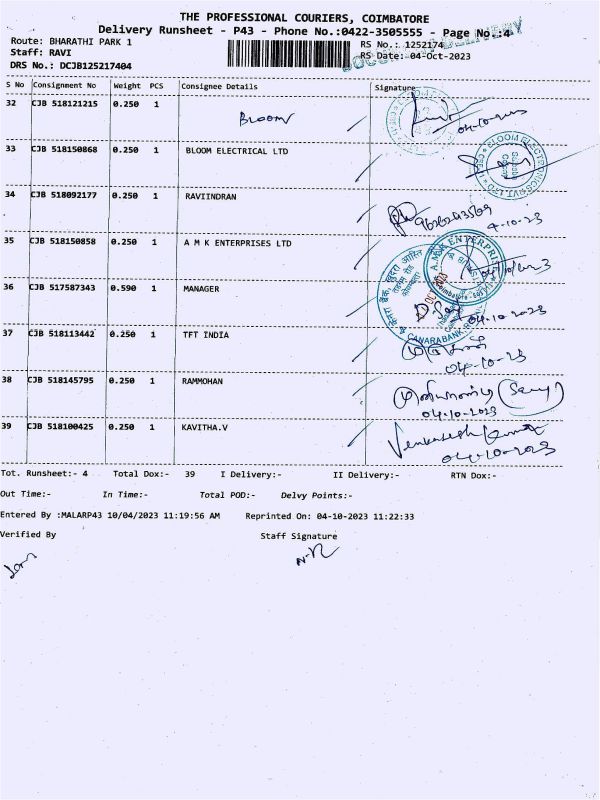 THE PROFESSIONAL COURIERS, COIMBATORE
Delivery Runsheet - P43 - Phone No.:0422-3505555 - Page No.:4
Route: BHARATHI PARK 1
RS No.: 1252174
Staff: RAVI
RS Date: 04-Oct-2023
DRS No.: DCJB125217404
S No Consignment No Weight PCS Consignee Details Signature
32 CJB 518121215 0.250 1 BLOOM
04-10-2023
33 CJB 518150868 0.250 1 BLOOM ELECTRICAL LTD
BLOOM ELECTRONICS PVT. LTD
34 CJB 518092177 0.250 1 RAVIINDRAN
4-10-23
35 CJB 518150858 0.250 1 A M K ENTERPRISES LTD
A.M.K ENTERPRISES
36 CJB 517587343 0.590 1 MANAGER
04-10-2023
CANARA BANK
37 CJB 518113442 0.250 1 TFT INDIA
04-10-23
38 CJB 518145795 0.250 1 RAMMOHAN
04-10-2023
39 CJB 518100425 0.250 1 KAVITHA.V
Venkatesh Kumar
04-10-2023
Tot. Runsheet:- 4 Total Dox:- 39 I Delivery:- II Delivery:- RTN Dox:-
Out Time:- In Time:- Total POD:- Delvy Points:-
Entered By :MALARP43 10/04/2023 11:19:56 AM Reprinted On: 04-10-2023 11:22:33
Verified By Staff Signature